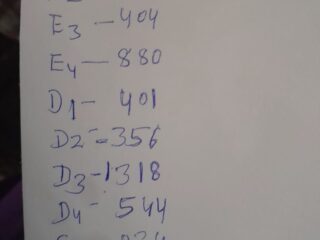 E3 - 404
E4 - 880
D1 - 401
D2 - 356
D3 - 1318
D4 - 544